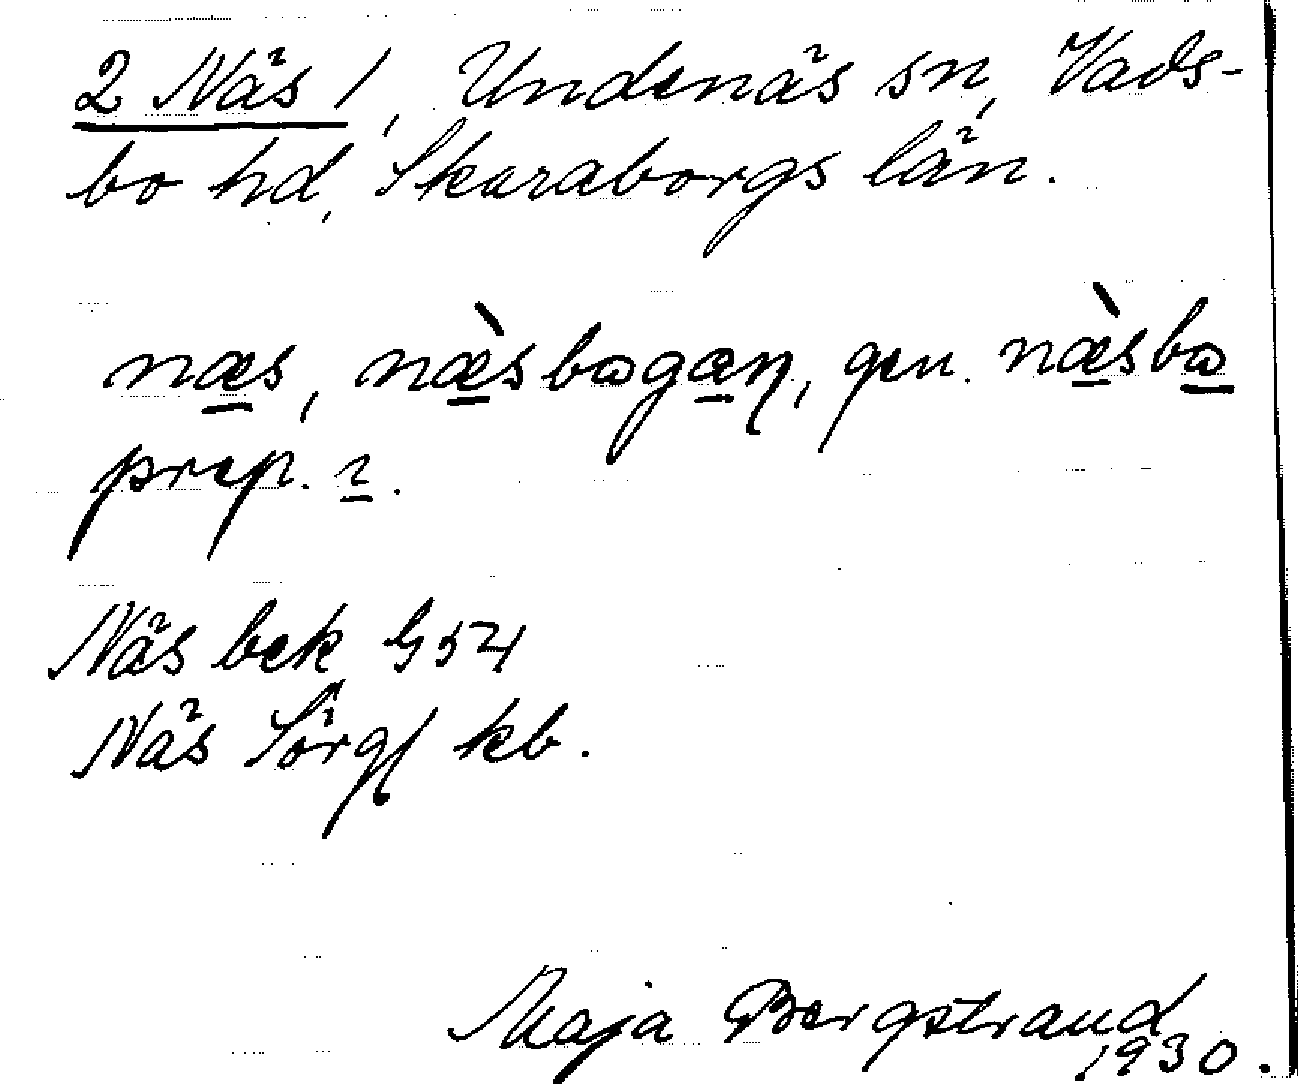 2 Näs /, Undenäs sn, Vads-
bo hd, Skaraborgs län.
næs, næ̀sbogæn, gen. næ̀sbo
prep. i.
Näs bek G54
Näs Sörgf kb.
Maja Bergstrand
1930.